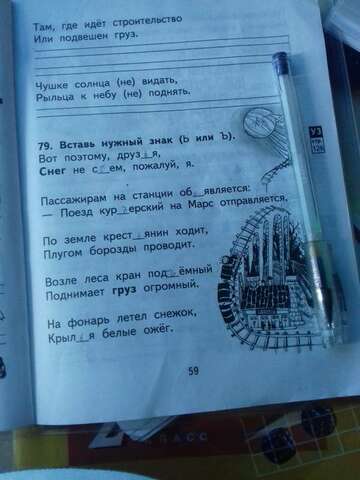 Там, где идёт строительство
Или подвешен груз.
Чушке солнца (не) видать,
Рыльца к небу (не) поднять.
79. Вставь нужный знак (Ь или Ъ).
Вот поэтому, друз_ь_я,
Снег не с_ъ_ем, пожалуй, я.
Пассажирам на станции об__является:
— Поезд кур_ь_ерский на Марс отправляется.
По земле крест_ь_янин ходит,
Плугом борозды проводит.
Возле леса кран под_ъ_ёмный
Поднимает груз огромный.
На фонарь летел снежок,
Крыл_ь_я белые ожёг.
59
УЗ
стр.
126
КЛАСС